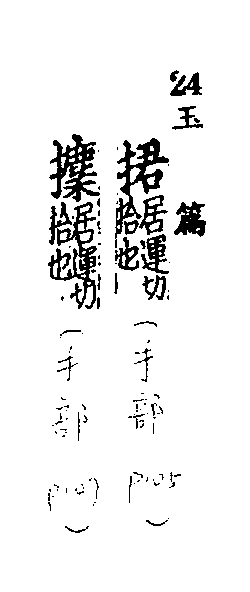 24
玉篇
捃居運切拾也(手部 P105)
攈居運切拾也(手部 P107)